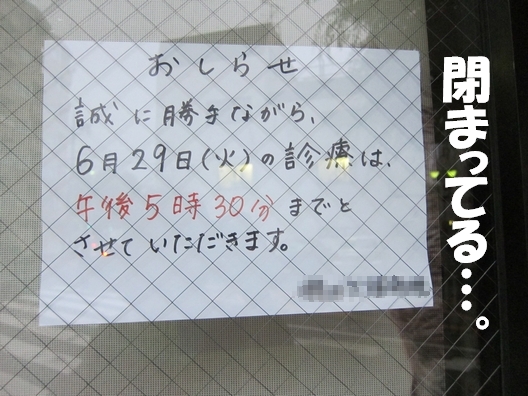 おしらせ
誠に勝手ながら、
6月29日(火)の診療は、
午後5時30分までと
させていただきます。
閉まってる…。